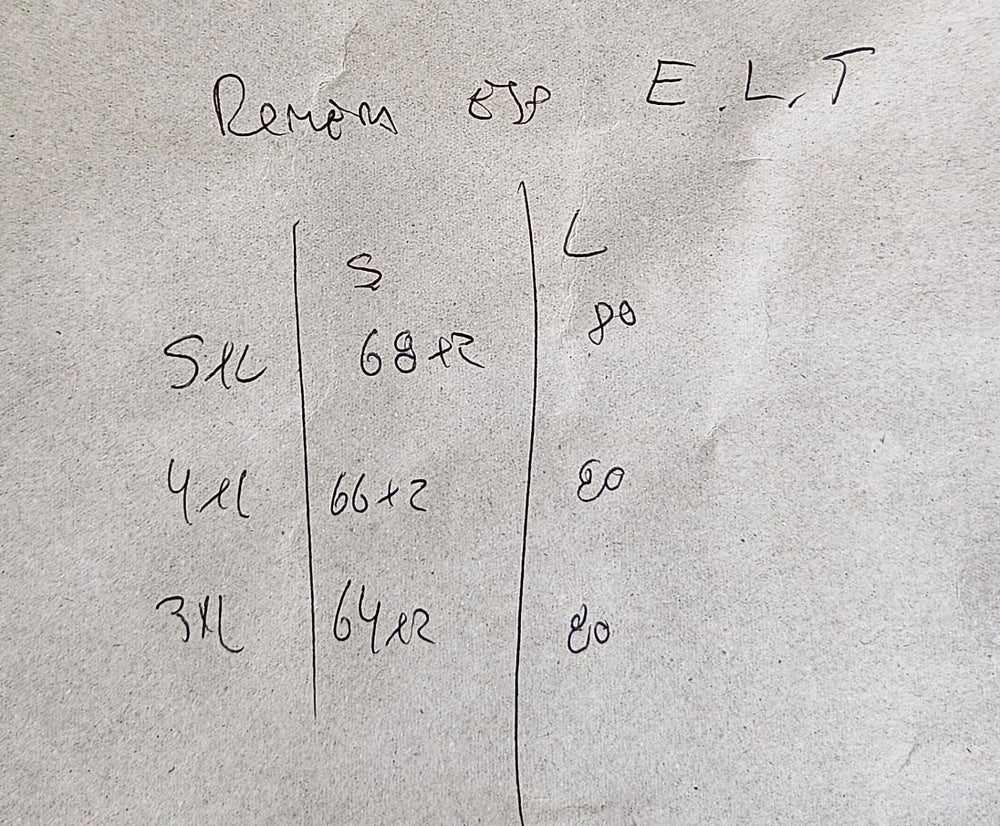 E.L.T
S L
5XL 68x2 80
4XL 66x2 80
3XL 64x2 80